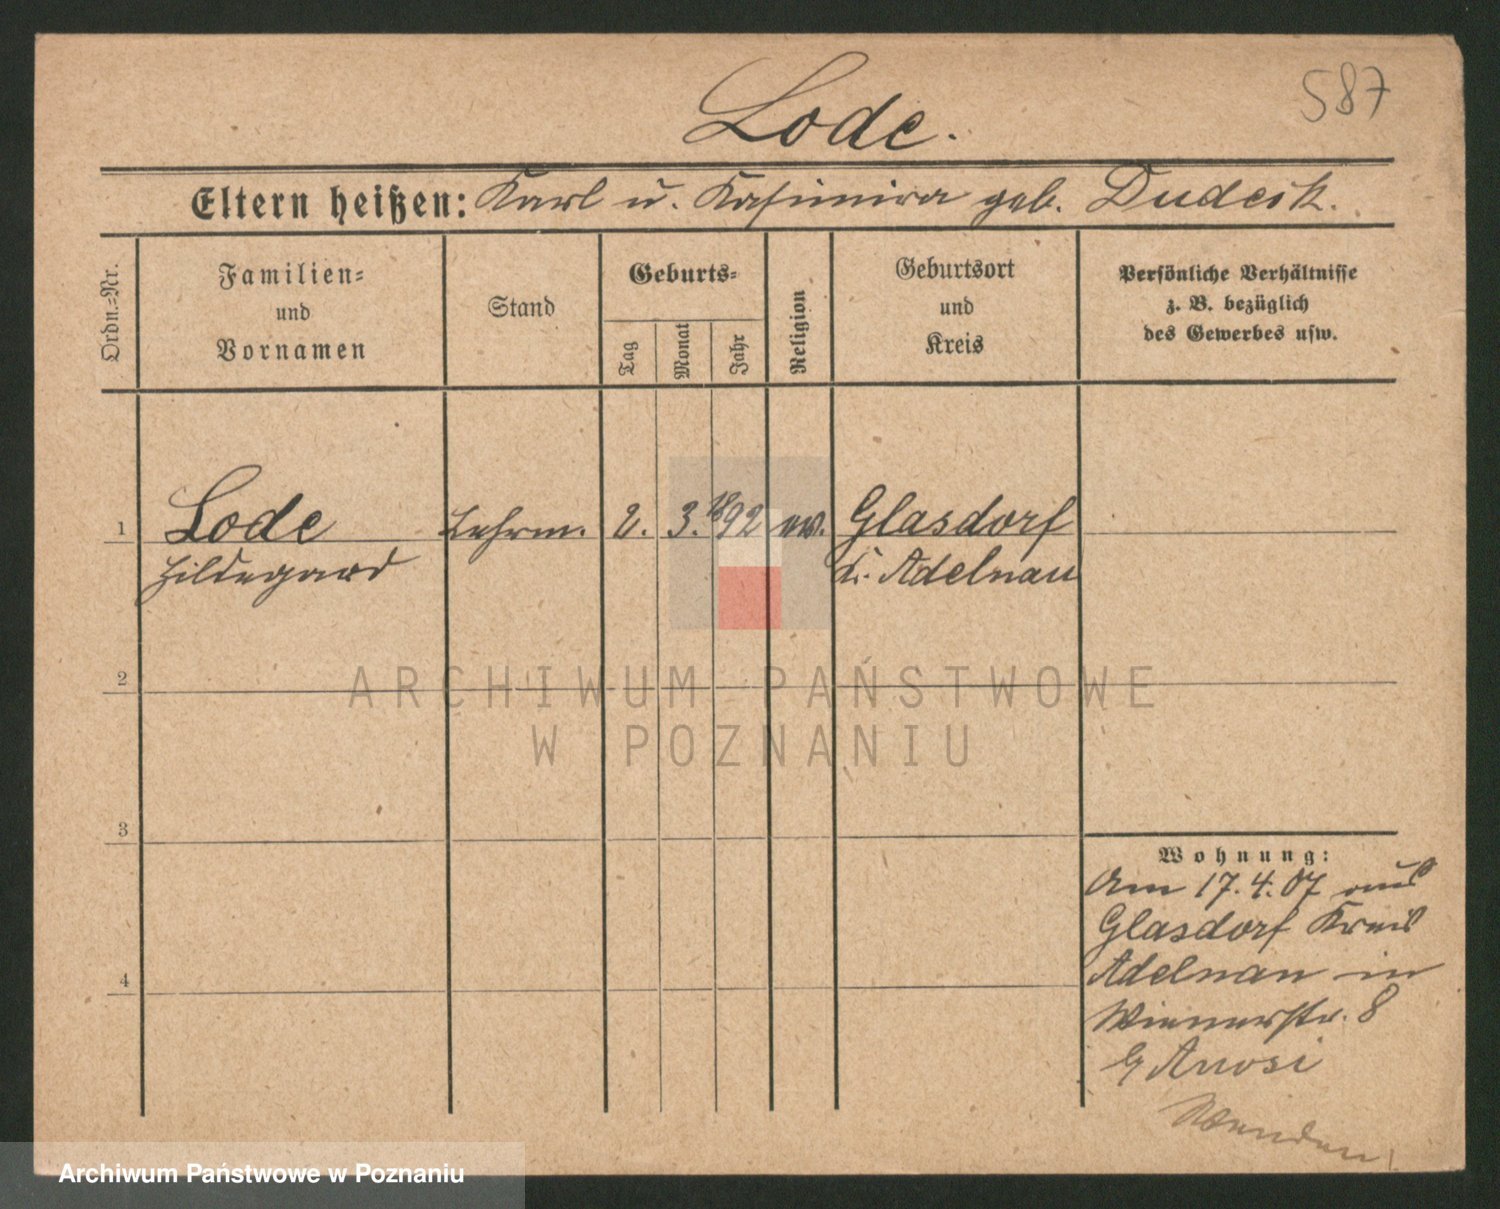 587
Lode.
Eltern heißen: Karl u. Kasimira geb.
Ordn.=Nr.
Familien=
und
Vornamen
Stand
Geburts=
Tag
Monat
Jahr
Religion
Geburtsort
und
Kreis
Persönliche Verhältnisse
z. B. bezüglich
des Gewerbes usw.
1 Lode 2. 3. 1892 ev. Glasdorf
Hildegard K. Adelnau
2
3
4
Wohnung:
Am 17.4.07 aus
Glasdorf Kreis
Adelnau in
Wienerstr. 8
Wenden!
ARCHIWUM PAŃSTWOWE
W POZNANIU
Archiwum Państwowe w Poznaniu